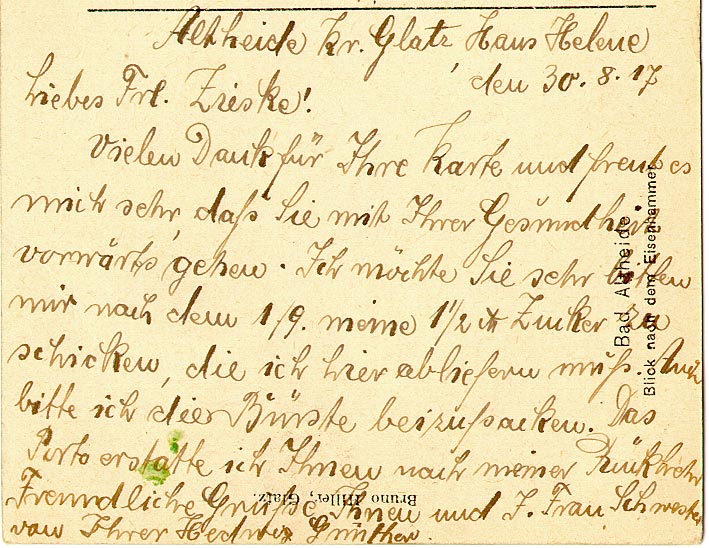 Altheide Kr. Glatz, Haus Helene
den 30. 8. 17
Liebes Frl. Zieske!
Vielen Dank für Ihre Karte und freut es
mich sehr, daß Sie mit Ihrer Gesundheit
vorwärts gehen. Ich möchte Sie sehr bitten
mir nach dem 1/9. meine 1 1/2 ℔ Zucker zu
schicken, die ich hier abliefern muß. Auch
bitte ich die Bürste beizupacken. Das
Porto erstatte ich Ihnen nach meiner Rückkehr
Freundliche Grüße Ihnen und I. Frau Schwester
von Ihrer Hedwig Günther.
Bad Altheide
Blick nach dem Eisenhammer
Bruno Hiller, Glatz.